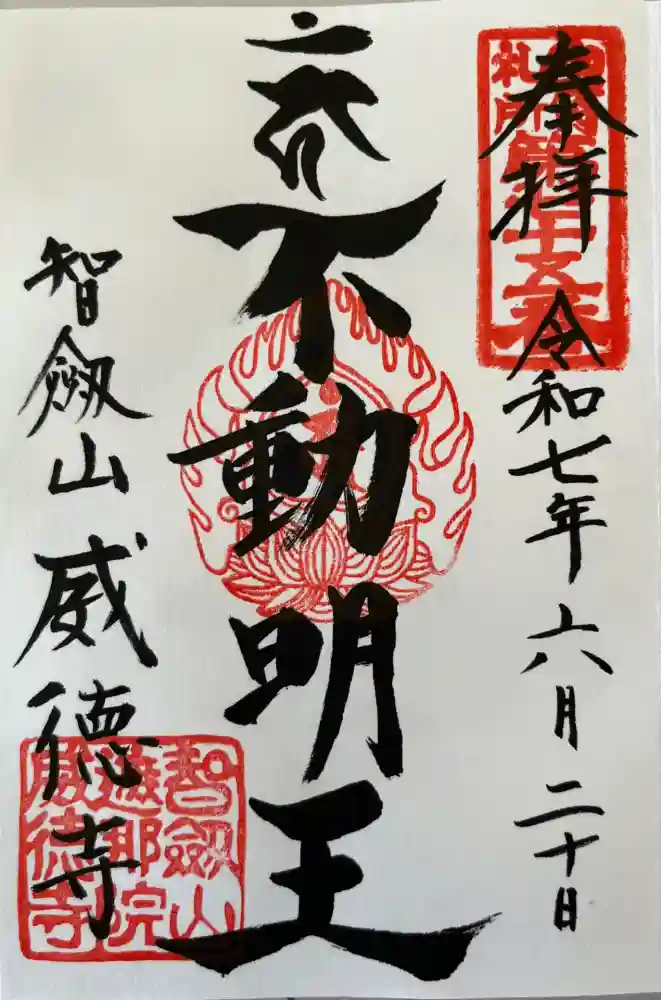 奉拝
令和七年六月二十日
不動明王
智劔山威徳寺
智劔山
遮那院
威徳寺